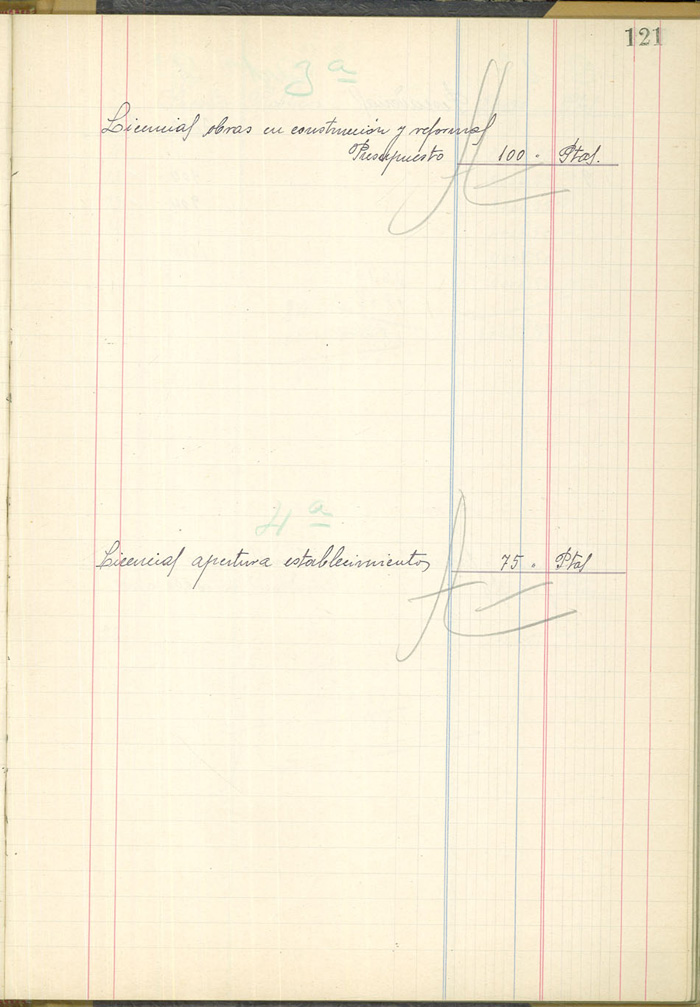 121
3ª
Licencias obras en construcción y reformas
Presupuesto 100 . Ptas.
4ª
Licencias apertura establecimientos 75 . Ptas